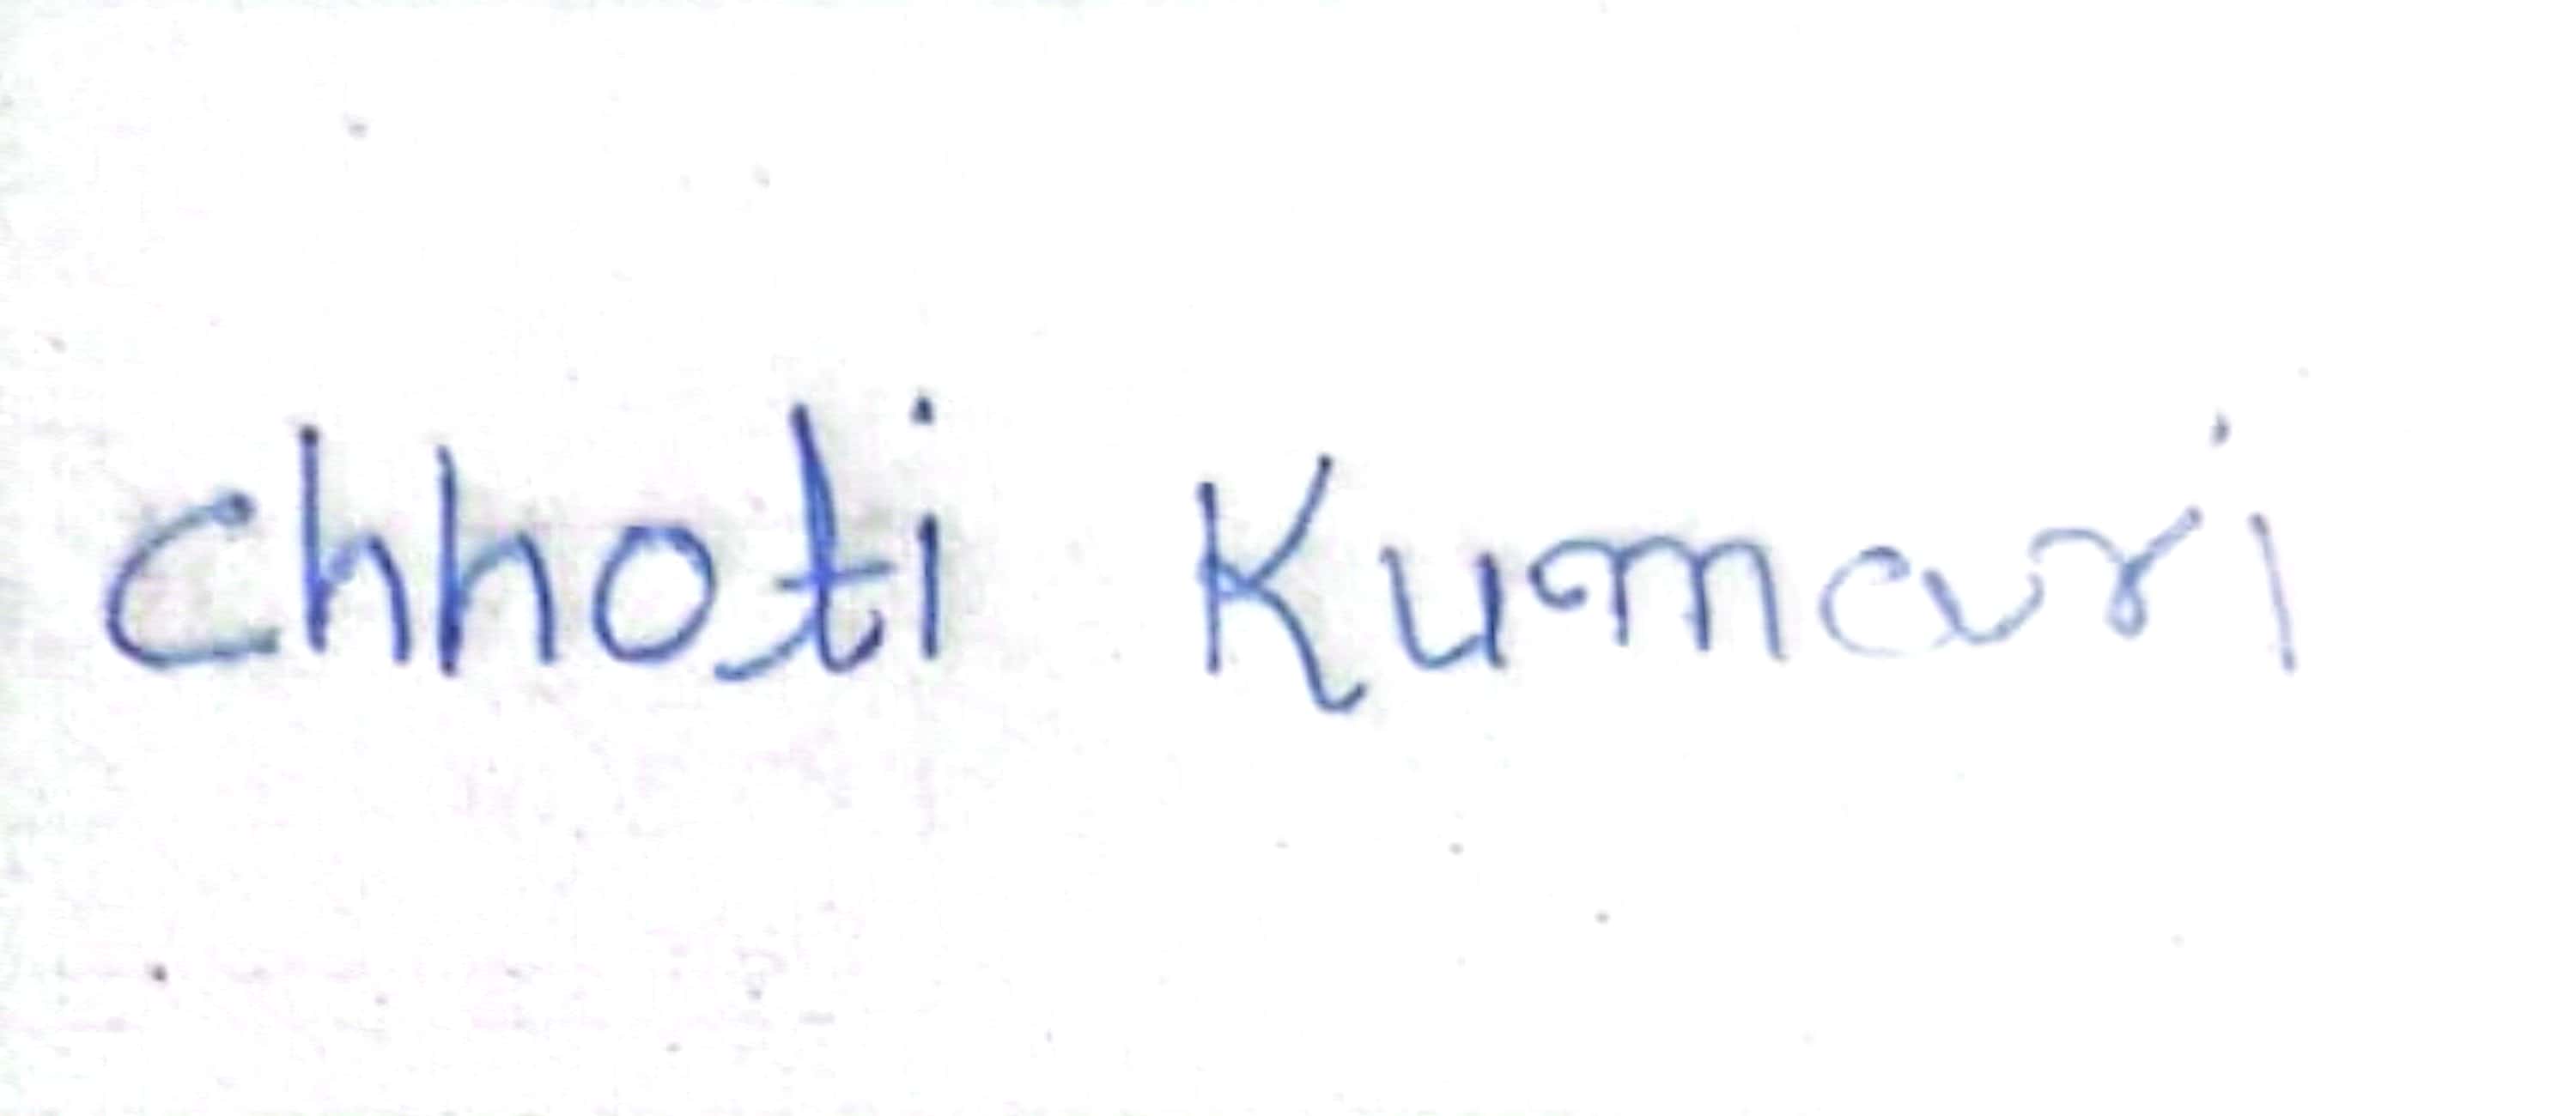 Chhoti Kumari